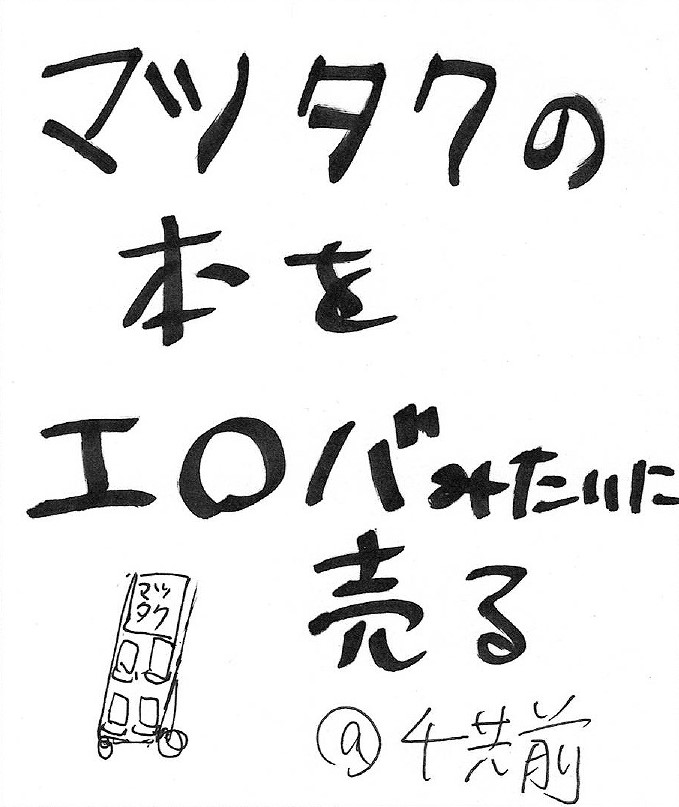 マツタクの
本を
エロバみたいに
売る
マツ
タク
@千先前